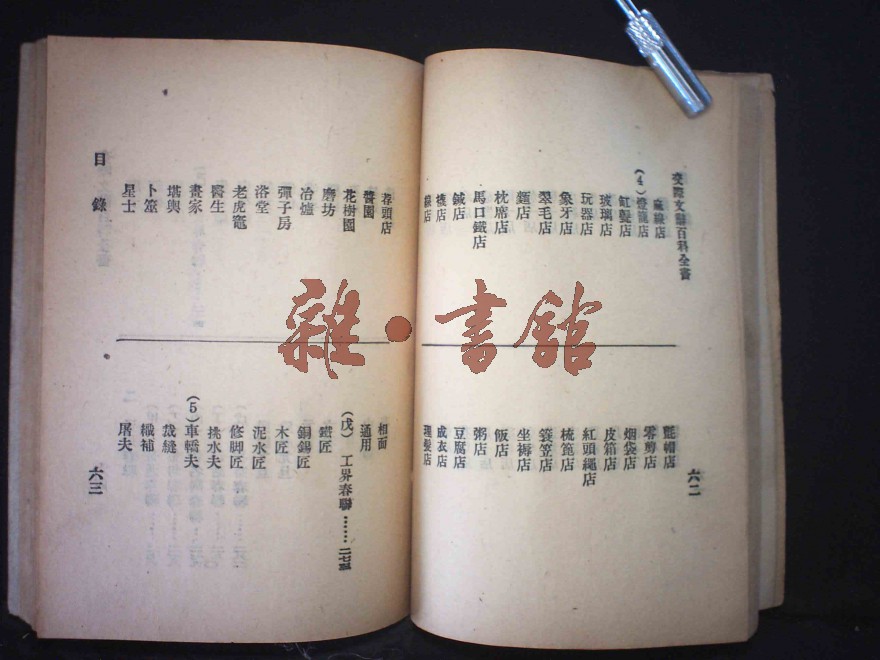 交際文辭百科全書
麻線店
(4)燈籠店
缸甏店
玻璃店
玩器店
象牙店
翠毛店
麵店
枕席店
馬口鐵店
鍼店
襪店
線店
六二
氈帽店
零剪店
烟袋店
皮箱店
紅頭繩店
梳篦店
簑笠店
坐褥店
飯店
粥店
豆腐店
成衣店
理髮店
荐頭店
醬園
花樹園
磨坊
冶爐
彈子房
浴堂
老虎竈
醫生
畫家
堪輿
卜筮
星士
目錄
相面
通用
(戊)工界春聯……二七五
鐵匠
銅錫匠
木匠
泥水匠
修脚匠
挑水夫
(5)車轎夫
裁縫
織補
屠夫
六三
雜·書館